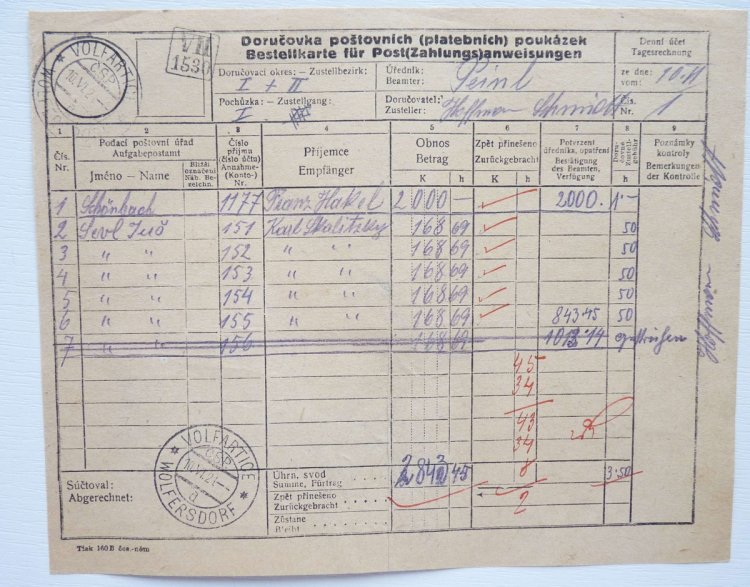 VOLFARTICE
ČSP
10.VI.2
VII
1530
Doručovka poštovních (platebních) poukázek
Bestellkarte für Post(Zahlungs)anweisungen
Denní účet
Tagesrechnung
Doručovací okres: - Zustellbezirk:
I + II
Úředník:
Beamter:
ze dne:
vom:
Pochůzka: - Zustellgang:
I.
Doručovatel:
Zusteller:
Hoffman Schmidt
Čís.
Nr.
1
1 2 3 4 5 6 7 8 9
Čís.
Nr.
Podací poštovní úřad
Aufgabepostamt
Jméno - Name
Bližší
označení
Näh. Be-
zeichn.
Číslo
příjma
(číslo účtu)
Annahme-
(Konto-)
Nr.
Příjemce
Empfänger
Obnos
Betrag
K h
Zpět přinešeno
Zurückgebracht
K h
Potvrzení
úředníka, opatření
Bestätigung
des Beamten,
Verfügung
Doru-
čovné
Zustell-
gebühr
Poznámky
kontroly
Bemerkungen
der Kontrolle
1 Schönbach 1177 Franz Hakel 2000 — 2000.— 1.—
2 151 Karl Malitzky 168 69 50
3 " " 152 " " 168 69 50
4 " " 153 " " 168 69 50
5 " " 154 " " 168 69 50
6 " " 155 " " 168 69 843 45 50
7 " " 156 168 69 1012 14 gestrichen
45
34
43
34
8
2
Úhrn. svod
Summe, Fürtrag
2843 45
3.50
Súčtoval:
Abgerechnet:
Zpět přinešeno
Zurückgebracht
Zůstane
Bleibt
VOLFARTICE
ČSP
10.VI.21
a
WOLFERSDORF
Tisk 160 B čes.-něm.